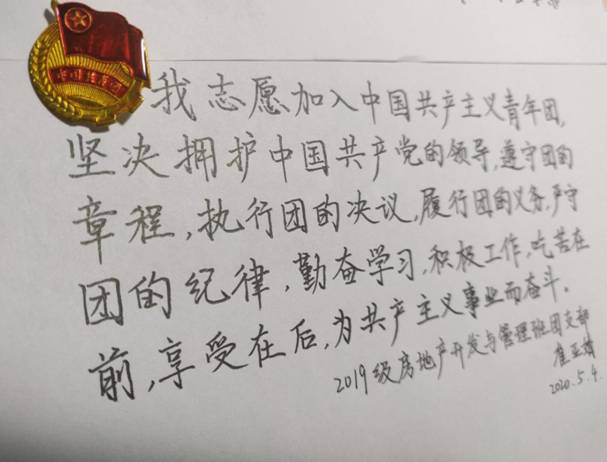 我志愿加入中国共产主义青年团,
坚决拥护中国共产党的领导,遵守团的
章程,执行团的决议,履行团的义务,严守
团的纪律,勤奋学习,积极工作,吃苦在
前,享受在后,为共产主义事业而奋斗。
2019级房地产开发与管理班团支部
崔亚
2020.5.4